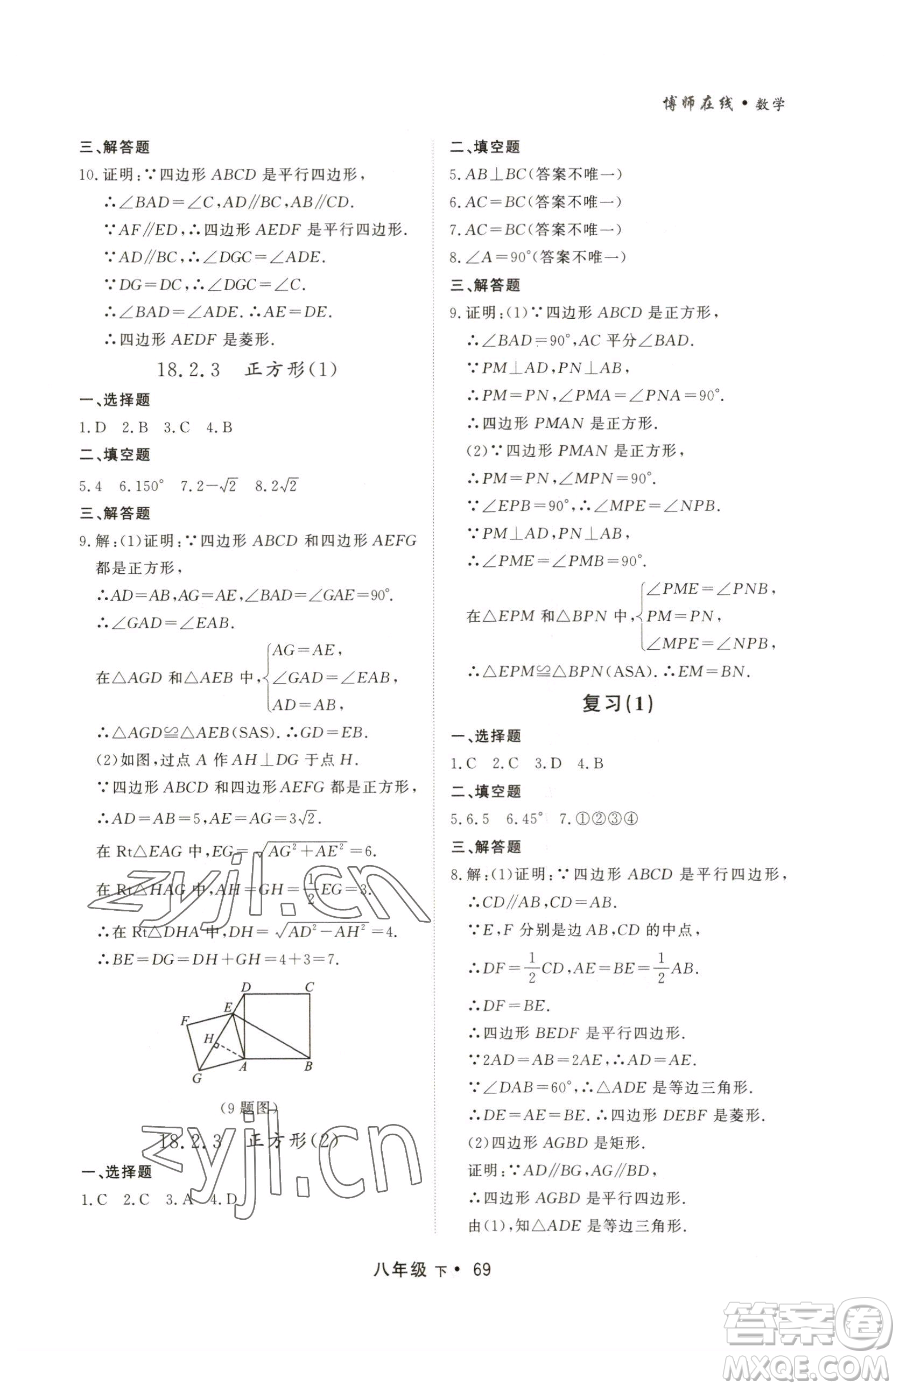 博师在线·数学
三、解答题
10.证明:∵四边形ABCD是平行四边形,
∴∠BAD=∠C,AD∥BC,AB∥CD.
∵AF∥ED,∴四边形AEDF是平行四边形.
∵AD∥BC,∴∠DGC=∠ADE.
∵DG=DC,∴∠DGC=∠C.
∴∠BAD=∠ADE.∴AE=DE.
∴四边形AEDF是菱形.
18.2.3 正方形(1)
一、选择题
1.D 2.B 3.C 4.B
二、填空题
5.4 6.150° 7.2-√2 8.2√2
三、解答题
9.解:(1)证明:∵四边形ABCD和四边形AEFG
都是正方形,
∴AD=AB,AG=AE,∠BAD=∠GAE=90°.
∴∠GAD=∠EAB.
在△AGD和△AEB中,{AG=AE,
∠GAD=∠EAB,
AD=AB,
∴△AGD≌△AEB(SAS).∴GD=EB.
(2)如图,过点A作AH⊥DG于点H.
∵四边形ABCD和四边形AEFG都是正方形,
∴AD=AB=5,AE=AG=3√2.
在Rt△EAG中,EG=√(AG²+AE²)=6.
在Rt△HAG中,AH=GH=1/2EG=3.
∴在Rt△DHA中,DH=√(AD²-AH²)=4.
∴BE=DG=DH+GH=4+3=7.
D C
F E
H
G A B
(9题图)
18.2.3 正方形(2)
一、选择题
1.C 2.C 3.A 4.D
二、填空题
5.AB⊥BC(答案不唯一)
6.AC=BC(答案不唯一)
7.AC=BC(答案不唯一)
8.∠A=90°(答案不唯一)
三、解答题
9.证明:(1)∵四边形ABCD是正方形,
∴∠BAD=90°,AC平分∠BAD.
∵PM⊥AD,PN⊥AB,
∴PM=PN,∠PMA=∠PNA=90°.
∴四边形PMAN是正方形.
(2)∵四边形PMAN是正方形,
∴PM=PN,∠MPN=90°.
∵∠EPB=90°,∴∠MPE=∠NPB.
∵PM⊥AD,PN⊥AB,
∴∠PME=∠PMB=90°.
在△EPM和△BPN中,{∠PME=∠PNB,
PM=PN,
∠MPE=∠NPB,
∴△EPM≌△BPN(ASA).∴EM=BN.
复习(1)
一、选择题
1.C 2.C 3.D 4.B
二、填空题
5.6.5 6.45° 7.①②③④
三、解答题
8.解:(1)证明:∵四边形ABCD是平行四边形,
∴CD∥AB,CD=AB.
∵E,F分别是边AB,CD的中点,
∴DF=1/2CD,AE=BE=1/2AB.
∴DF=BE.
∴四边形BEDF是平行四边形.
∵2AD=AB=2AE,∴AD=AE.
∵∠DAB=60°,∴△ADE是等边三角形.
∴DE=AE=BE.∴四边形DEBF是菱形.
(2)四边形AGBD是矩形.
证明:∵AD∥BG,AG∥BD,
∴四边形AGBD是平行四边形.
由(1),知△ADE是等边三角形.
八年级 下·69
zyjl.cn
zyjl.cn
答案圈
MXQE.COM